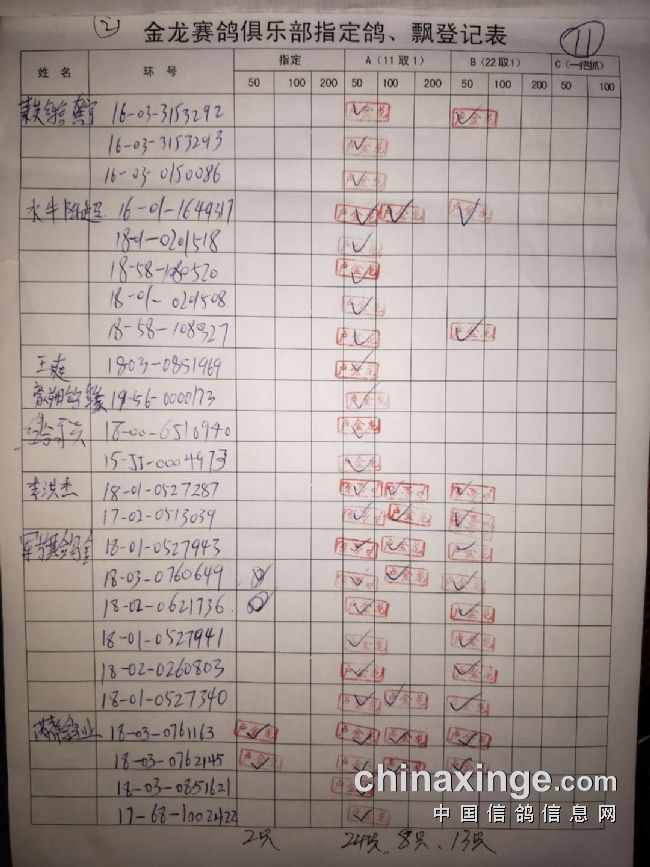 ② 金龙赛鸽俱乐部指定鸽、飘登记表 11
姓名 环号 指定 A(11取1) B(22取1) C(一把抓)
50 100 200 50 100 200 50 100 200 50 100
16-03-3153292
16-03-3153293
16-03-0150086
16-01-1649317
18-01-0201518
18-58-1080520
18-01-0201508
18-58-108327
王爽 1803-0851969
19-56-0000173
18-00-6510940
15-JJ-0004973
李洪杰 18-01-0527287
17-02-0513039
18-01-0527943
18-03-0760649
18-02-0621736
18-01-0527941
18-02-0260803
18-01-0527340
18-03-0761163
18-03-0762145
18-03-0851621
17-68-1002422
2只 24只、8只、13只
chinaxinge.com
中国信鸽信息网